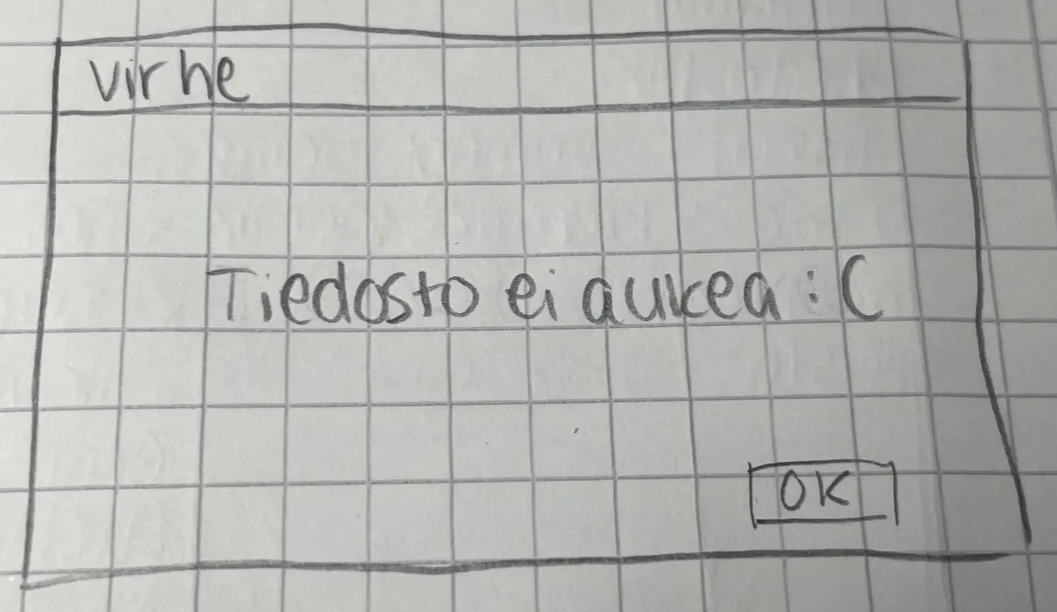 virhe
Tiedosto ei aukea :(
OK